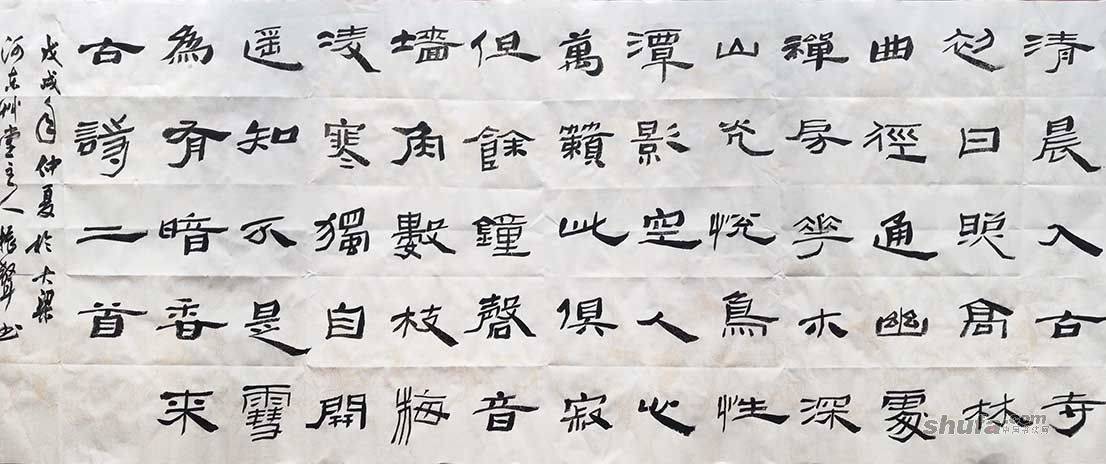 清晨入古寺
初日照高林
曲徑通幽處
禪房華木深
山光悅鳥性
潭影空人心
萬籟此俱寂
但餘鐘磬音
墻角數枝梅
凌寒獨自開
遥知不是雪
為有暗香來
古詩二首
戊戌年仲夏於大梁
河東艸堂主人振聲书
shufa.com